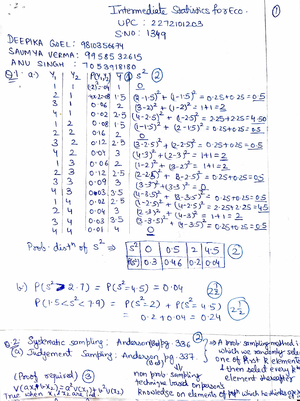 Intermediate Statistics for Eco.
UPC : 2272101203
S.NO : 1349
DEEPIKA GOEL : 9810356674
SAUMYA VERMA : 9958532615
ANU SINGH : 7053918180
Q.1 a) Y₁ Y₂ P(Y₁,Y₂) Ȳ S² (2)
1 1 (.2)² = .04 1 0
1 2 .4×.2 = .08 1.5 (2-1.5)² + (1-1.5)² = 0.25+0.25 = 0.5
1 3 0.06 2 (3-2)² + (1-2)² = 1+1 = 2
1 4 0.02 2.5 (4-2.5)² + (1-2.5)² = 2.25+2.25 = 4.50
2 1 0.08 1.5 (1-1.5)² + (2-1.5)² = 0.25+0.25 = 0.5
2 2 0.16 2 0
2 3 0.12 2.5 (3-2.5)² + (2-2.5)² = 0.25+0.25 = 0.5
2 4 0.04 3 (4-3)² + (2-3)² = 1+1 = 2
3 1 0.06 2 (1-2)² + (3-2)² = 1+1 = 2
3 2 0.12 2.5 (2-2.5)² + (3-2.5)² = 0.25+0.25 = 0.5
3 3 0.09 3 (3-3)² + (3-3)² = 0
3 4 0.03 3.5 (4-3.5)² + (3-3.5)² = 0.25+0.25 = 0.5
4 1 0.02 2.5 (1-2.5)² + (4-2.5)² = 2.25+2.25 = 4.5
4 2 0.04 3 (2-3)² + (4-3)² = 1+1 = 2
4 3 0.03 3.5 (3-3.5)² + (4-3.5)² = 0.25+0.25 = 0.5
4 4 0.01 4 0
Prob. distⁿ of S² ⇒ S² 0 0.5 2 4.5 (2)
P(S²) 0.3 0.46 0.2 0.04
b) P(S² > 2.7) = P(S² = 4.5) = 0.04
P(1.5 < S² < 7.9) = P(S² = 2) + P(S² = 4.5)
= 0.2 + 0.04 = 0.24
Q.2 Systematic sampling : Anderson pg. 336
(a) Judgement Sampling : Anderson pg. 337
⇒ A prob. sampling method in
which we randomly select
one of first k elements
& then select every kth
element thereafter
non prob sampling
technique based on person's
knowledge on elements of popⁿ
(Proof required) (3)